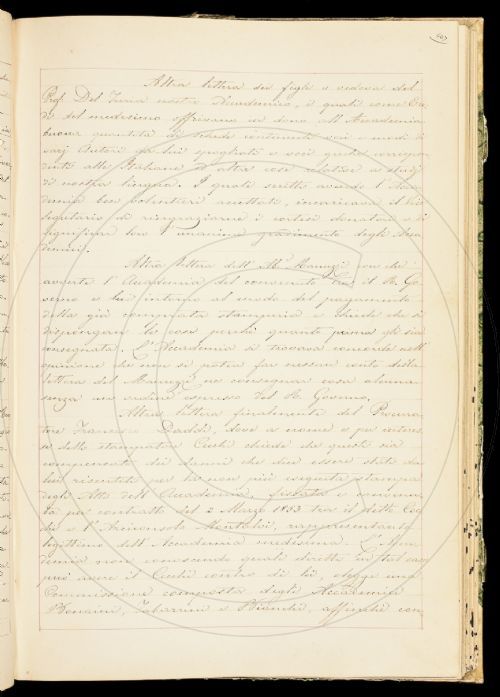 Altra lettera dei figli e vedova del
Prof. Del Furia nostro Accademico, i quali come Ere-
di del medesimo offrivano in dono all'Accademia
buona quantità di schede contenenti voci e modi di
varj Autori da lui spogliati e voci greche corrispon-
denti alle Italiane ed altre cose relative a studj
di nostra lingua. I quali scritti avendo l'Acca-
demia ben volentieri accettati, incaricava il
Segretario di ringraziarne i cortesi donatori e di
significar loro l'unanime gradimento degli Acca-
demici.
Altra lettera dell' Manuzzi con che
avverte l'Accademia del convenuto tra il R. Go-
verno e lui intorno al modo del pagamento
della già comprata stamperia e chiede che si
dispongan le cose perchè quanto prima gli sia
consegnata. L'Accademia si trovava concorde nell'
opinione che non si potea far nessun conto della
lettera del Manuzzi nè consegnar cosa alcuna
senza un ordine espresso del R. Governo.
Altra lettera finalmente del Procura-
tore Francesco Dadidi, dove a nome e per interes-
se dello stampatore Cecchi chiede che questi sia
compensato dei danni che dice essere stati da
lui risentiti per la non più eseguita stampa
degli Atti dell'Accademia, fissata e convenu-
ta per contratto del 2 Marzo 1853 tra il detto Cec-
chi e l'Arciconsolo Montalvi, rappresentante
legittimo dell'Accademia medesima. L'Acca-
demia non conoscendo quali diritti in tal caso
può avere il Cecchi contro di lei, elegge una
Commissione composta degli Accademici
Bencini, Tabarrini e Bianchi, affinchè con